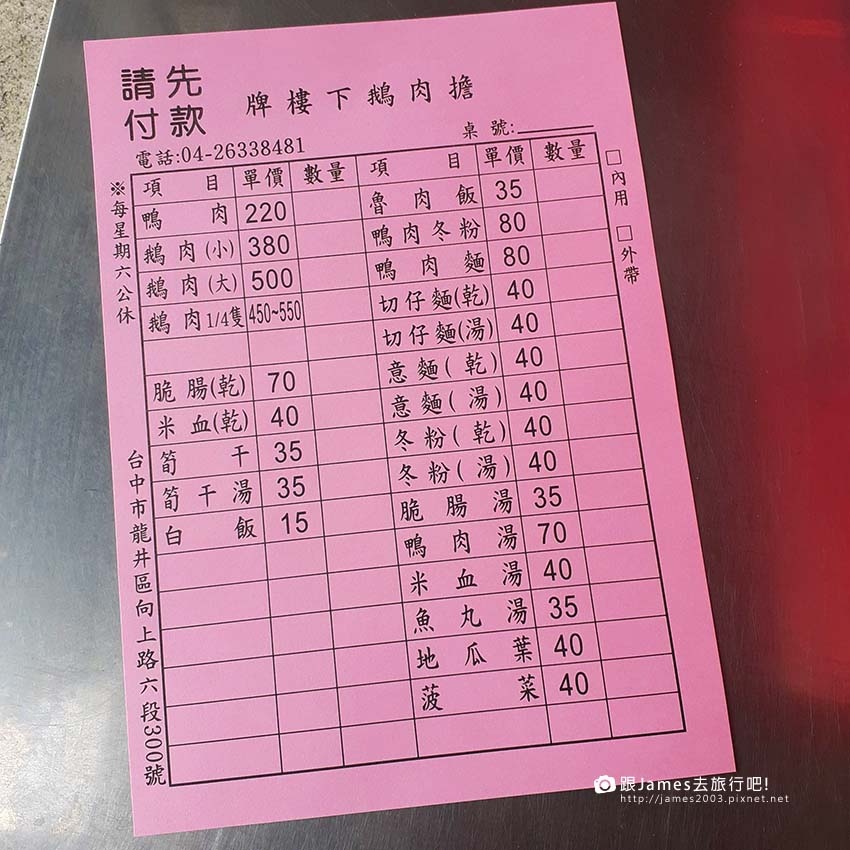 請先付款
牌樓下鵝肉擔
電話:04-26338481
桌號:
項目 單價 數量 項目 單價 數量
鴨肉 220
鵝肉(小) 380
鵝肉(大) 500
鵝肉1/4隻 450~550
脆腸(乾) 70
米血(乾) 40
筍干 35
筍干湯 35
白飯 15
魯肉飯 35
鴨肉冬粉 80
鴨肉麵 80
切仔麵(乾) 40
切仔麵(湯) 40
意麵(乾) 40
意麵(湯) 40
冬粉(乾) 40
冬粉(湯) 40
脆腸湯 35
鴨肉湯 70
米血湯 40
魚丸湯 35
地瓜葉 40
菠菜 40
□內用 □外帶
※每星期六公休
台中市龍井區向上路六段300號
跟James去旅行吧!
http://james2003.pixnet.net